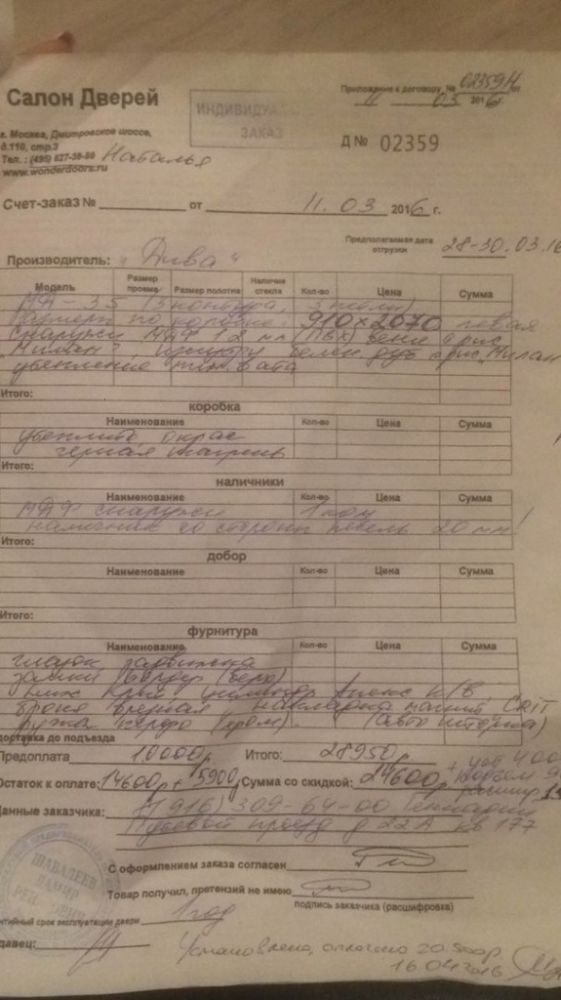 Салон Дверей
ИНДИВИДУАЛЬНЫЙ ЗАКАЗ
Приложение к договору № 02359Н от
11 03 2016
г. Москва, Дмитровское шоссе,
д.110, стр.3
Тел. : (495) 627-38-88 Наталья
www.wonderdoors.ru
Д № 02359
Счет-заказ № от 11.03 2016 г.
Предполагаемая дата отгрузки 28-30.03.16
Производитель: "Дива"
Модель Размер проема Размер полотна Наличие стекла Кол-во Цена Сумма
МД-35 (3 контура, 3 петли)
Размер по коробке: 910×2070 левая
снаружи МДФ 12 мм (ПВХ) венге рис.
"Милан", внутри белен. дуб рис. Милан
утепление мин. вата
Итого:
коробка
Наименование Кол-во Цена Сумма
утеплить, окрас
черная шагрень
Итого:
наличники
Наименование Кол-во Цена Сумма
МДФ снаружи 1 ком
наличник со стороны петель 20 мм!
Итого:
добор
Наименование Кол-во Цена Сумма
Итого:
фурнитура
Наименование Кол-во Цена Сумма
глазок задвижка
замки Бордер (верх)
ниж цилиндр к/в
броня врезная накладка магнит CRIT
ручка (хром) (авто шторка)
доставка до подъезда
Предоплата 10000р Итого: 28950р
Остаток к оплате: 14600р + 5900 Сумма со скидкой: 24600р
Данные заказчика: 8(916) 309-64-00 Геннадий
Путевой проезд д 22А кв 177
С оформлением заказа согласен
Товар получил, претензий не имею
подпись заказчика (расшифровка)
гарантийный срок эксплуатации двери 1 год
Продавец:
Установлено, оплачено 20 500р
16.04.2016